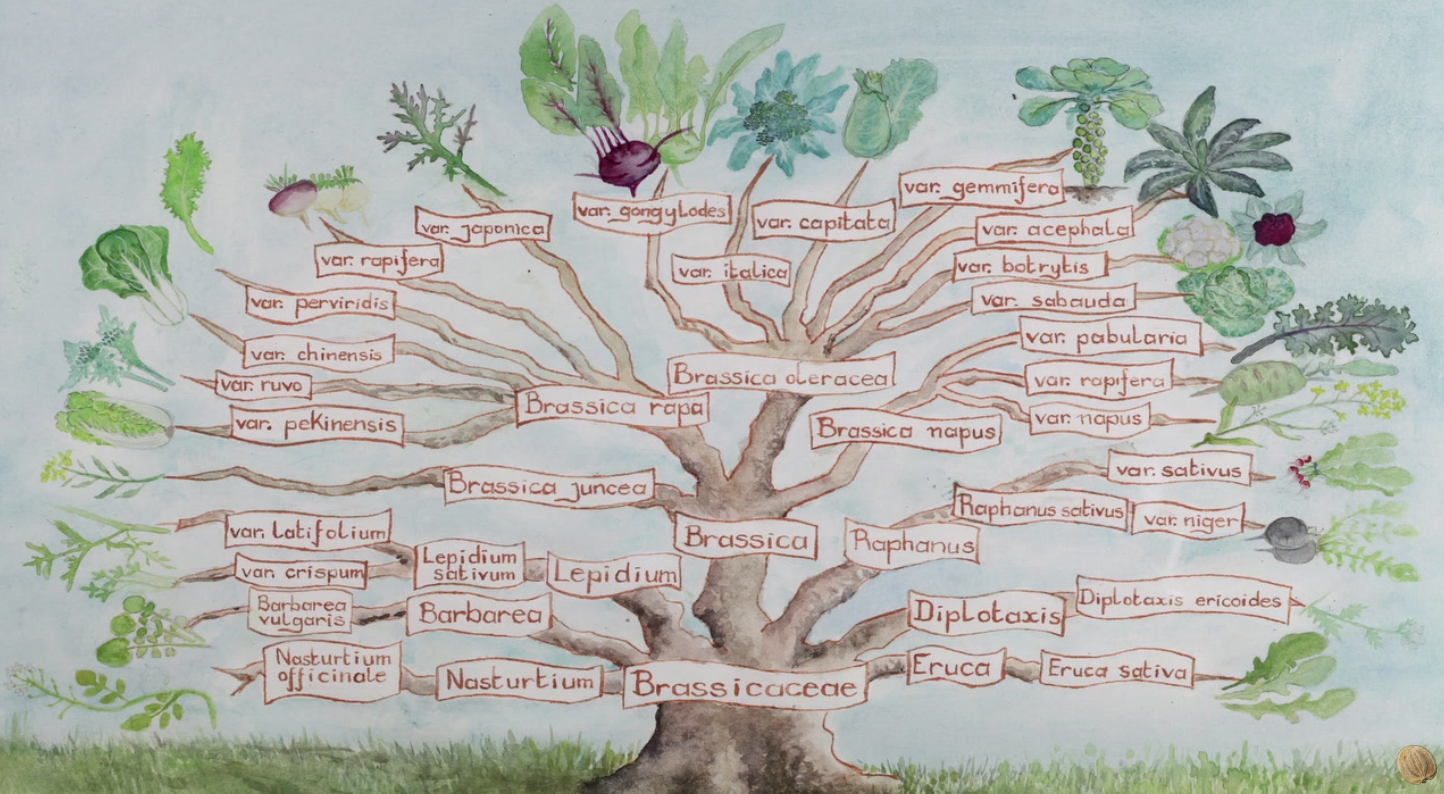 var. gemmifera
var. gongylodes
var. capitata
var. japonica
var. acephala
var. rapifera
var. italica
var. botrytis
var. perviridis
var. sabauda
var. pabularia
var. chinensis
Brassica oleracea
var. ruvo
var. rapifera
Brassica rapa
var. napus
var. peKinensis
Brassica napus
var. sativus
Brassica juncea
Raphanus sativus
var. niger
var. latifolium
Brassica
Raphanus
Lepidium
sativum
var. crispum
Lepidium
Barbarea
vulgaris
Barbarea
Diplotaxis
Diplotaxis ericoides
Nasturtium
officinale
Nasturtium
Brassicaceae
Eruca
Eruca sativa